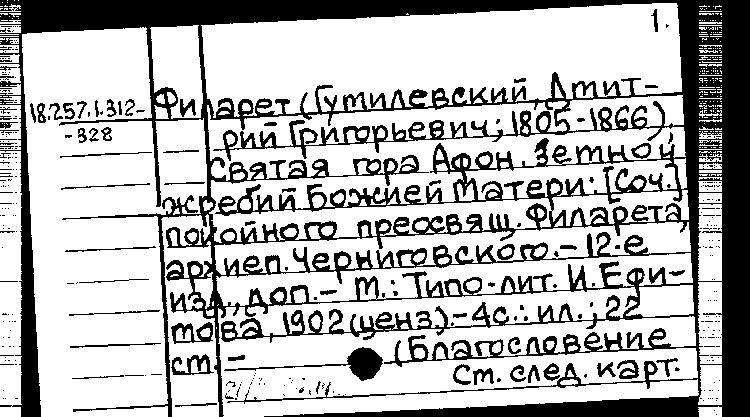 1.
18.257.1.312- Филарет (Гумилевский, Дмит-
-328 рий Григорьевич; 1805-1866).
Святая гора Афон. Земной
жребий Божией Матери: [Соч.]
покойного преосвящ. Филарета,
архиеп. Черниговского. - 12-е
изд., доп. - М.: Типо-лит. И. Ефи-
мова, 1902 (ценз). - 4с.: ил.; 22
см. - (Благословение
См. след. карт.